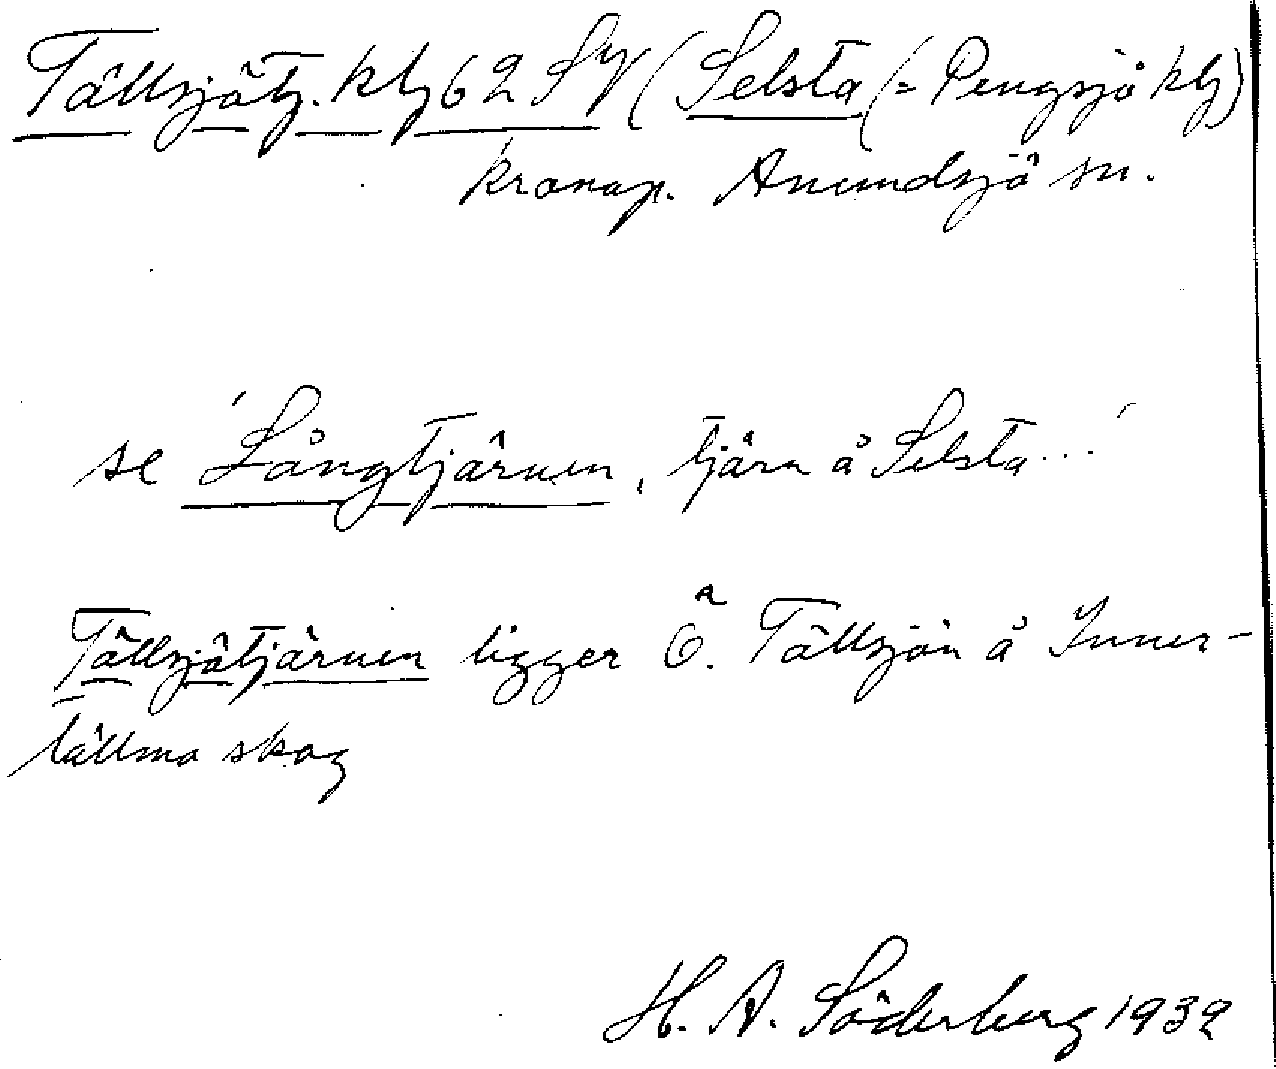 Tällsjötj. klj 62 SV (Selsta (= Pengsjö klj)
kronap. Anundsjö sn.
se 'Långtjärnen, tjärn å Selsta...'
Tällsjötjärnen ligger Ö. Tällsjön å Inner-
tällmo skog
H. A. Söderberg 1932